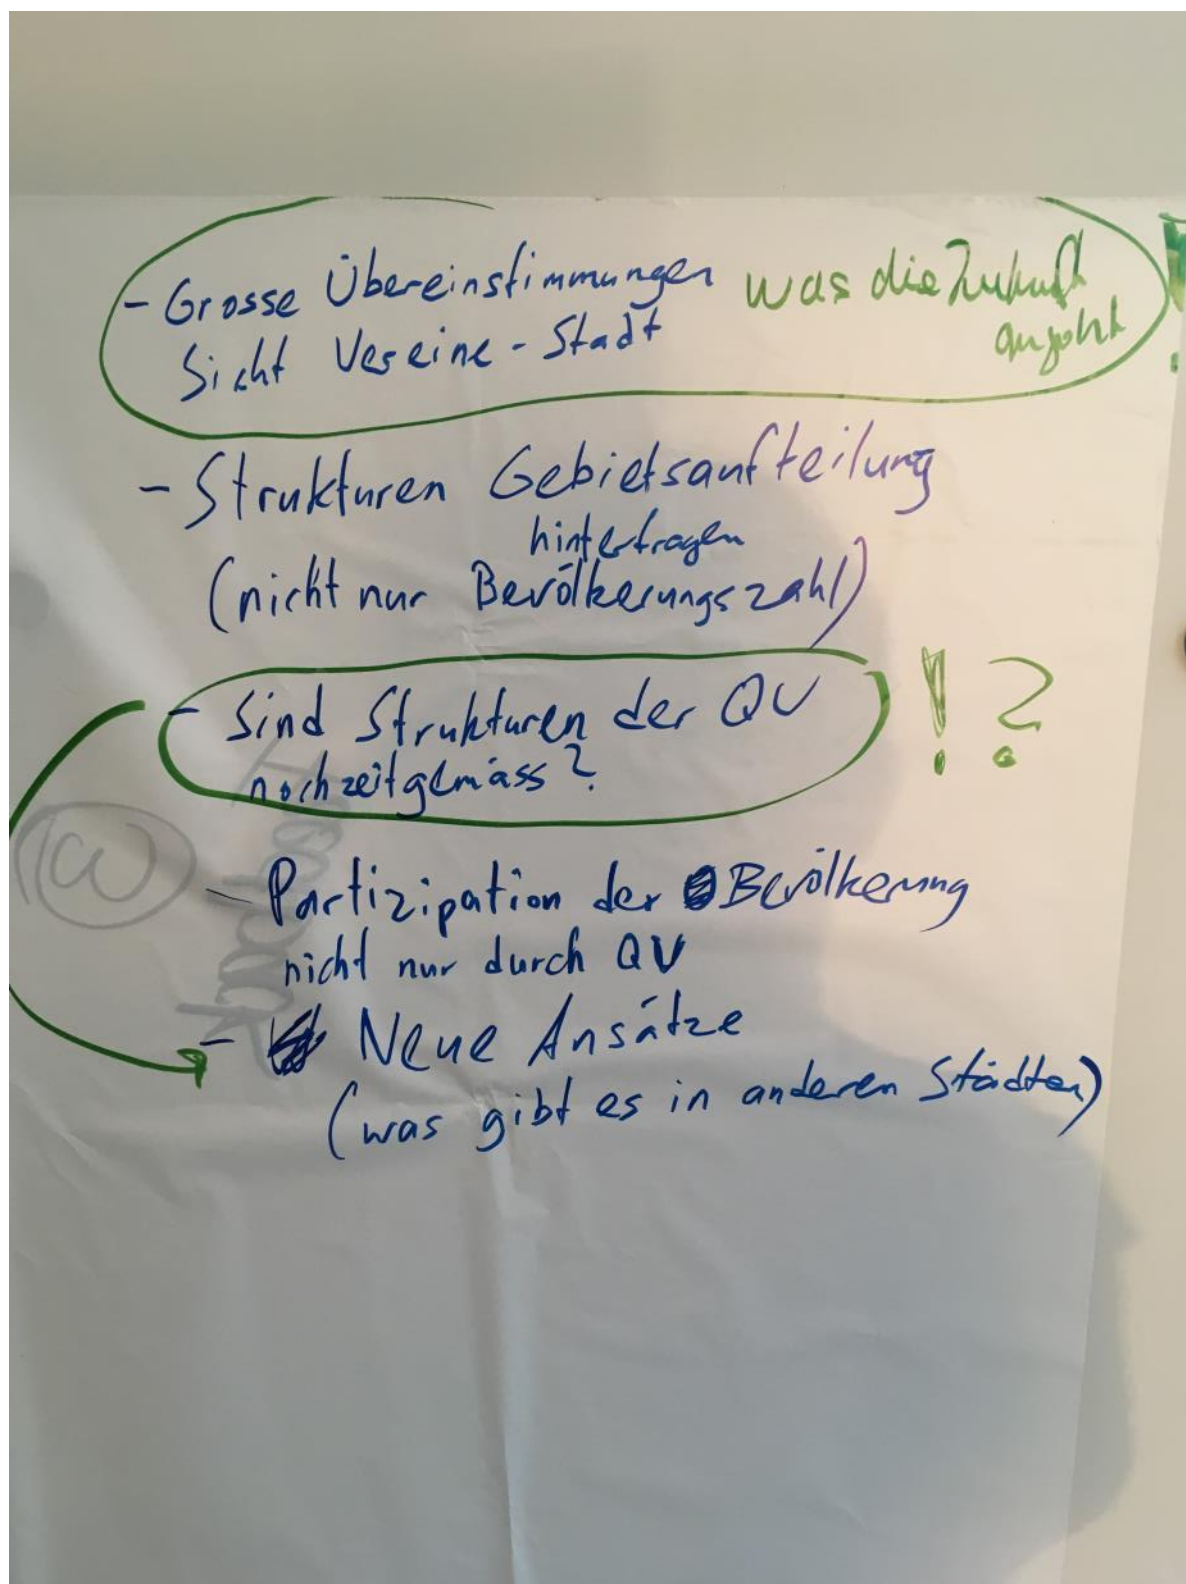 - Grosse Übereinstimmungen was die Zukunft
Sicht Vereine - Stadt angeht !
- Strukturen Gebietsaufteilung
hinterfragen
(nicht nur Bevölkerungszahl)
- Sind Strukturen der QV ! ?
noch zeitgemäss?
- Partizipation der Bevölkerung
nicht nur durch QV
- Neue Ansätze
(was gibt es in anderen Städten)